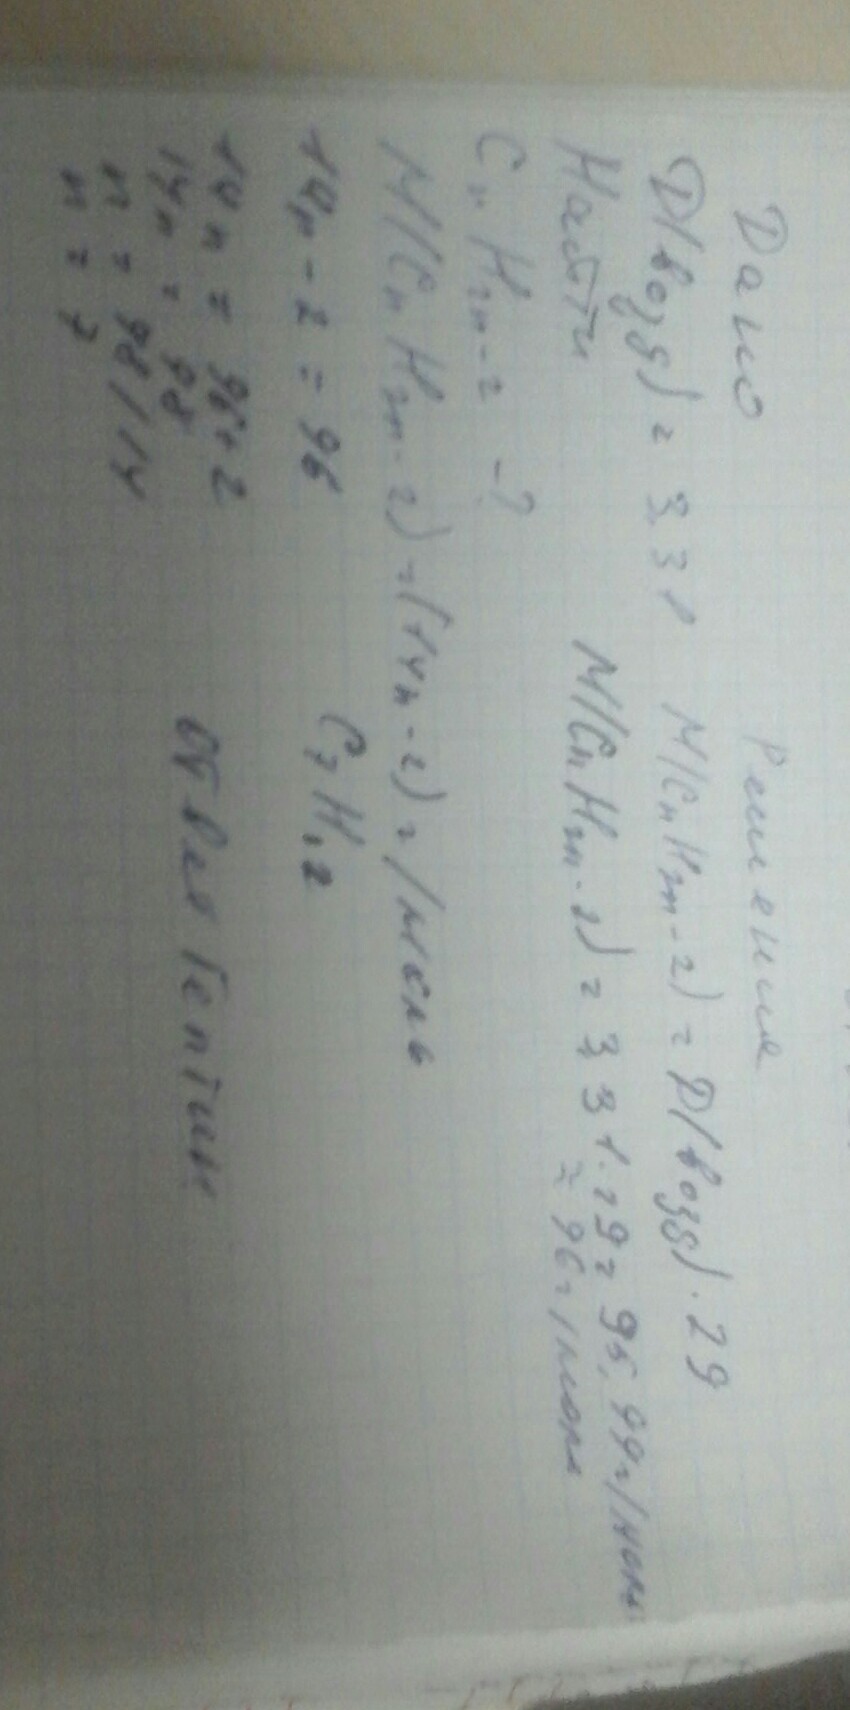 Дано
Решение
D(возд) = 3,31
M(CnH2n-2) = D(возд) · 29
Найти
M(CnH2n-2) = 3,31 · 29 = 95,99 г/моль
≈ 96 г/моль
CnH2n-2 - ?
M(CnH2n-2) = (14n-2) г/моль
14n - 2 = 96
C7H12
14n = 96+2
14n = 98
n = 98/14
n = 7
Ответ Гептин